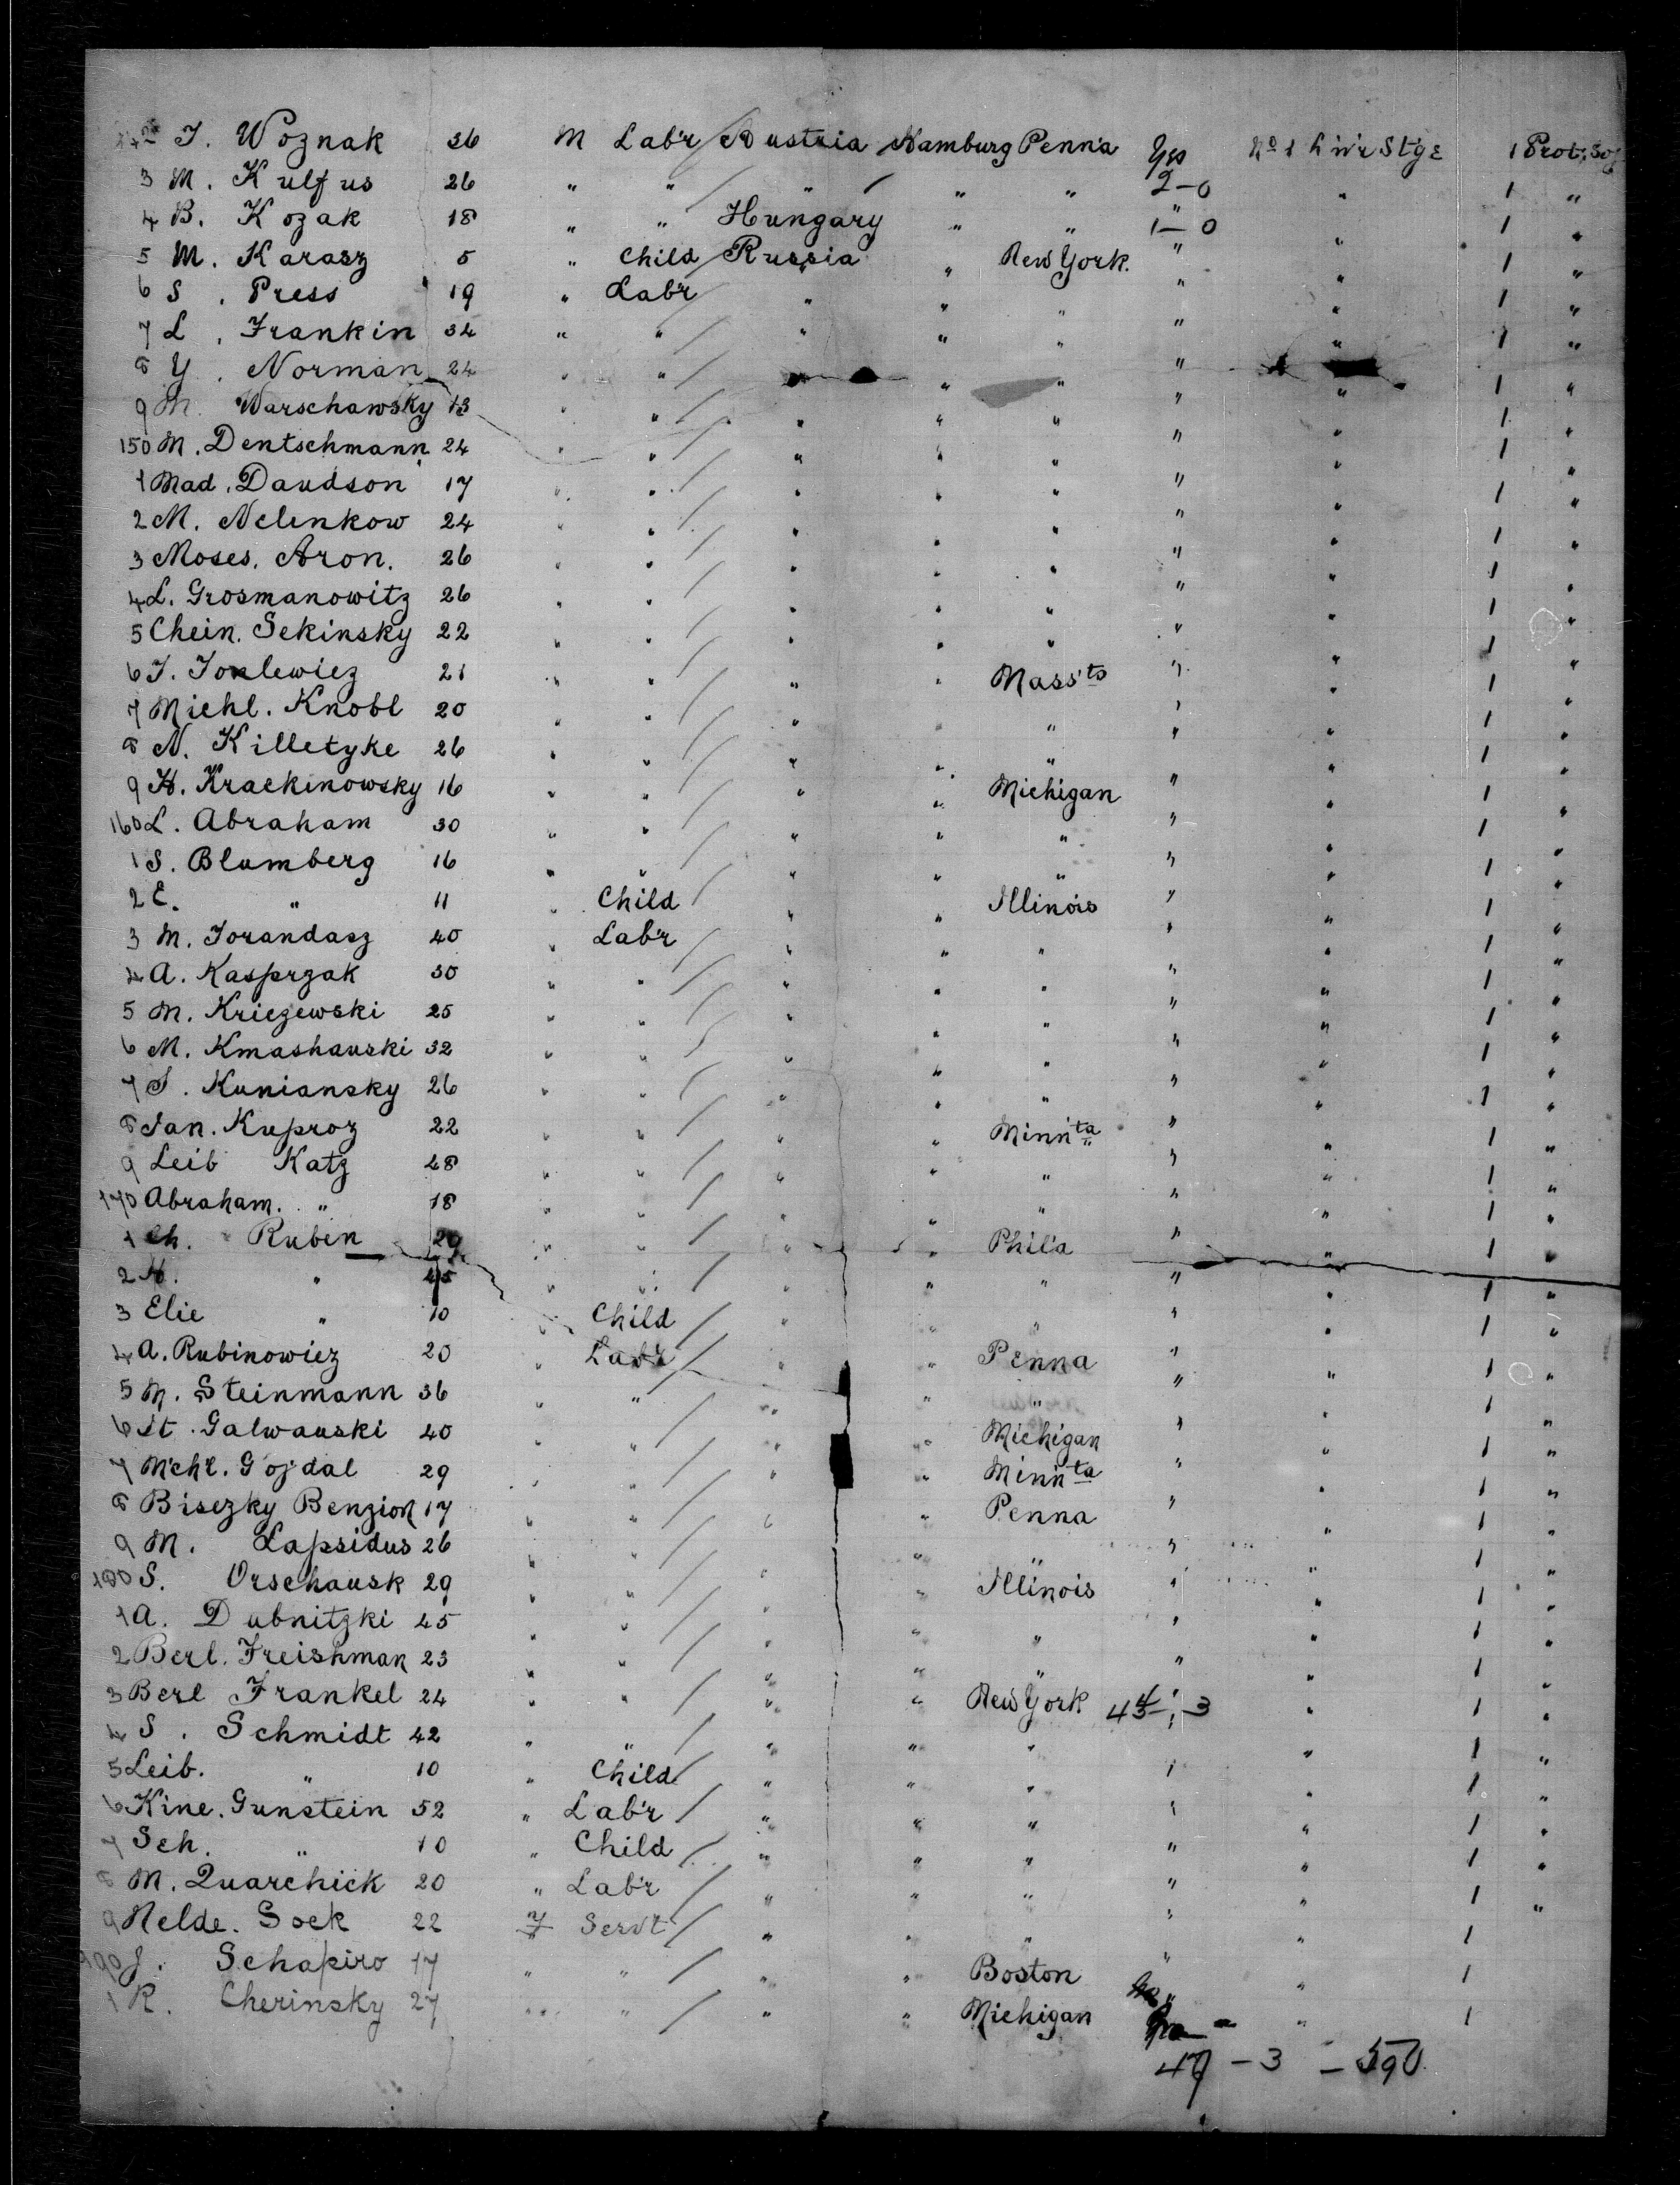 J. Woznak 36 M Lab'r Austria Hamburg Penn'a Yes No 1 L'w'r Stge 1 Prot. Sof
3 M. Kulfus 26 " " " " " 2-0 " 1 "
4 B. Kozak 18 " " Hungary " " " 1-0 " 1 "
5 M. Karasz 5 " Child Russia " New York. " " 1 "
6 S. Press 19 " Lab'r " " " " " 1 "
7 L. Frankin 34 " " " " " " " 1 "
8 Y. Norman 24 " " " " " " " 1 "
9 M. Warschawsky 18 " " " " " " " 1 "
150 M. Dentschmann 24 " " " " " " " 1 "
1 Mad. Daudson 17 " " " " " " " 1 "
2 M. Nelenkow 24 " " " " " " " 1 "
3 Moses. Aron. 26 " " " " " " " 1 "
4 L. Grosmanowitz 26 " " " " " " " 1 "
5 Chein. Sekinsky 22 " " " " " " " 1 "
6 J. Jonlewiez 21 " " " " Mass'ts " " 1 "
7 Miehl. Knobl 20 " " " " " " " 1 "
8 N. Killetyke 26 " " " " " " " 1 "
9 H. Krackinowsky 16 " " " " Michigan " " 1 "
160 L. Abraham 30 " " " " " " " 1 "
1 S. Blumberg 16 " " " " " " " 1 "
2 E. " 11 " Child " " Illinois " " 1 "
3 M. Jorandasz 40 " Lab'r " " " " " 1 "
4 A. Kasprzak 30 " " " " " " " 1 "
5 M. Kriezewski 25 " " " " " " " 1 "
6 M. Kmashauski 32 " " " " " " " 1 "
7 S. Kuniansky 26 " " " " " " " 1 "
8 Jan. Kuproz 22 " " " " Minn'ta " " 1 "
9 Leib Katz 48 " " " " " " " 1 "
170 Abraham. " 18 " " " " " " " 1 "
1 Ch. Rubin 29 " " " " Phil'a " " 1 "
2 H. " 45 " " " " " " " 1 "
3 Elie " 10 " Child " " " " " 1 "
4 A. Rubinowiez 20 " Lab'r " " Penna " " 1 "
5 M. Steinmann 36 " " " " " " " 1 "
6 St. Galwauski 40 " " " " Michigan " " 1 "
7 Mchl. Gojdal 29 " " " " Minn'ta " " 1 "
8 Bisezky Benzion 17 " " " " Penna " " 1 "
9 M. Lapsidus 26 " " " " " " " 1 "
180 S. Orschausk 29 " " " " Illinois " " 1 "
1 A. Dubnitzki 45 " " " " " " " 1 "
2 Berl. Freishman 23 " " " " " " " 1 "
3 Berl Frankel 24 " " " " New York 44-3 " 1 "
4 S. Schmidt 42 " " " " " " " 1 "
5 Leib. " 10 " Child " " " " " 1 "
6 Kine. Gunstein 52 " Lab'r " " " " " 1 "
7 Sch. " 10 " Child " " " " " 1 "
8 M. Quarchick 20 " Lab'r " " " " " 1 "
9 Nelde. Soek 22 F Serv't " " " " " 1
190 J. Schapiro 17 " " " " Boston " " 1
1 R. Cherinsky 27 " " " " Michigan " " 1
47 - 3 - 590